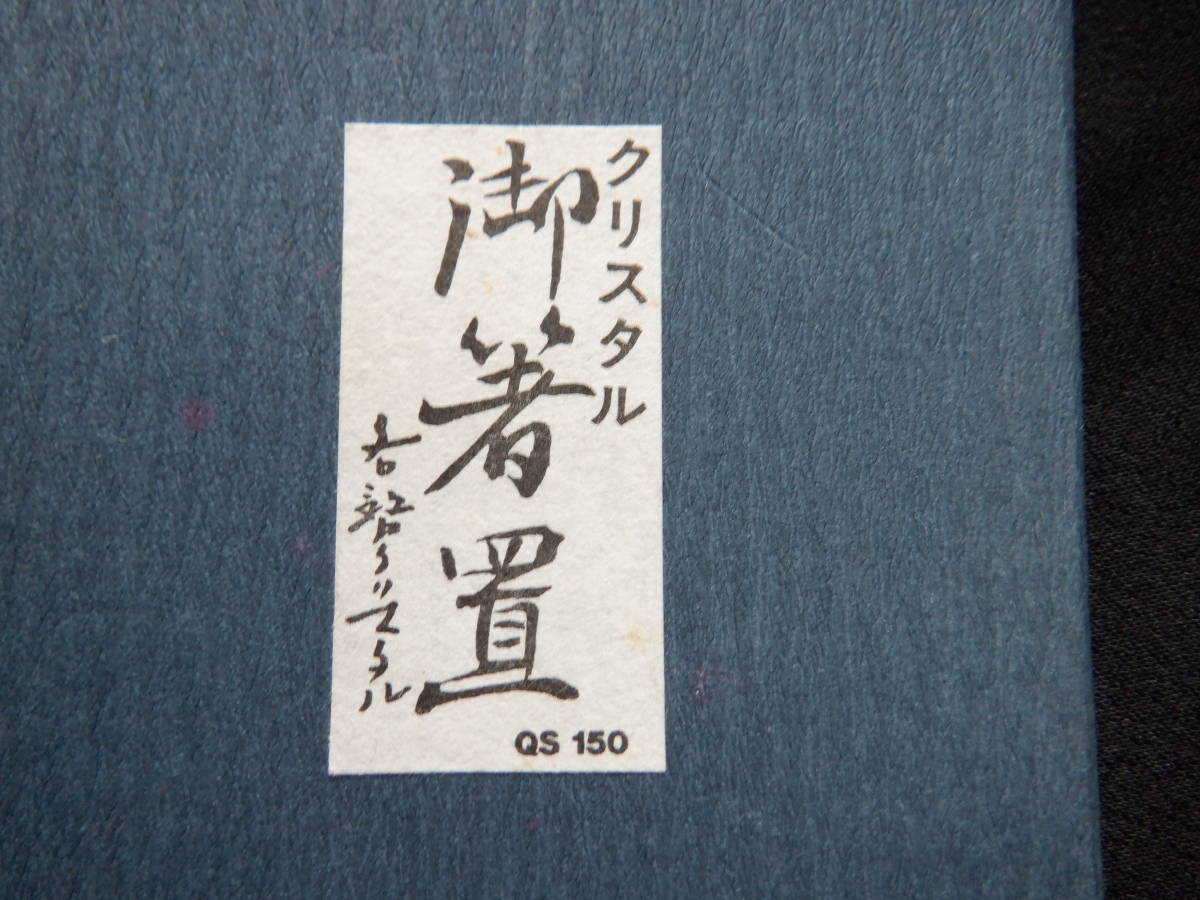 クリスタル
御箸置
各務クリスタル
QS 150